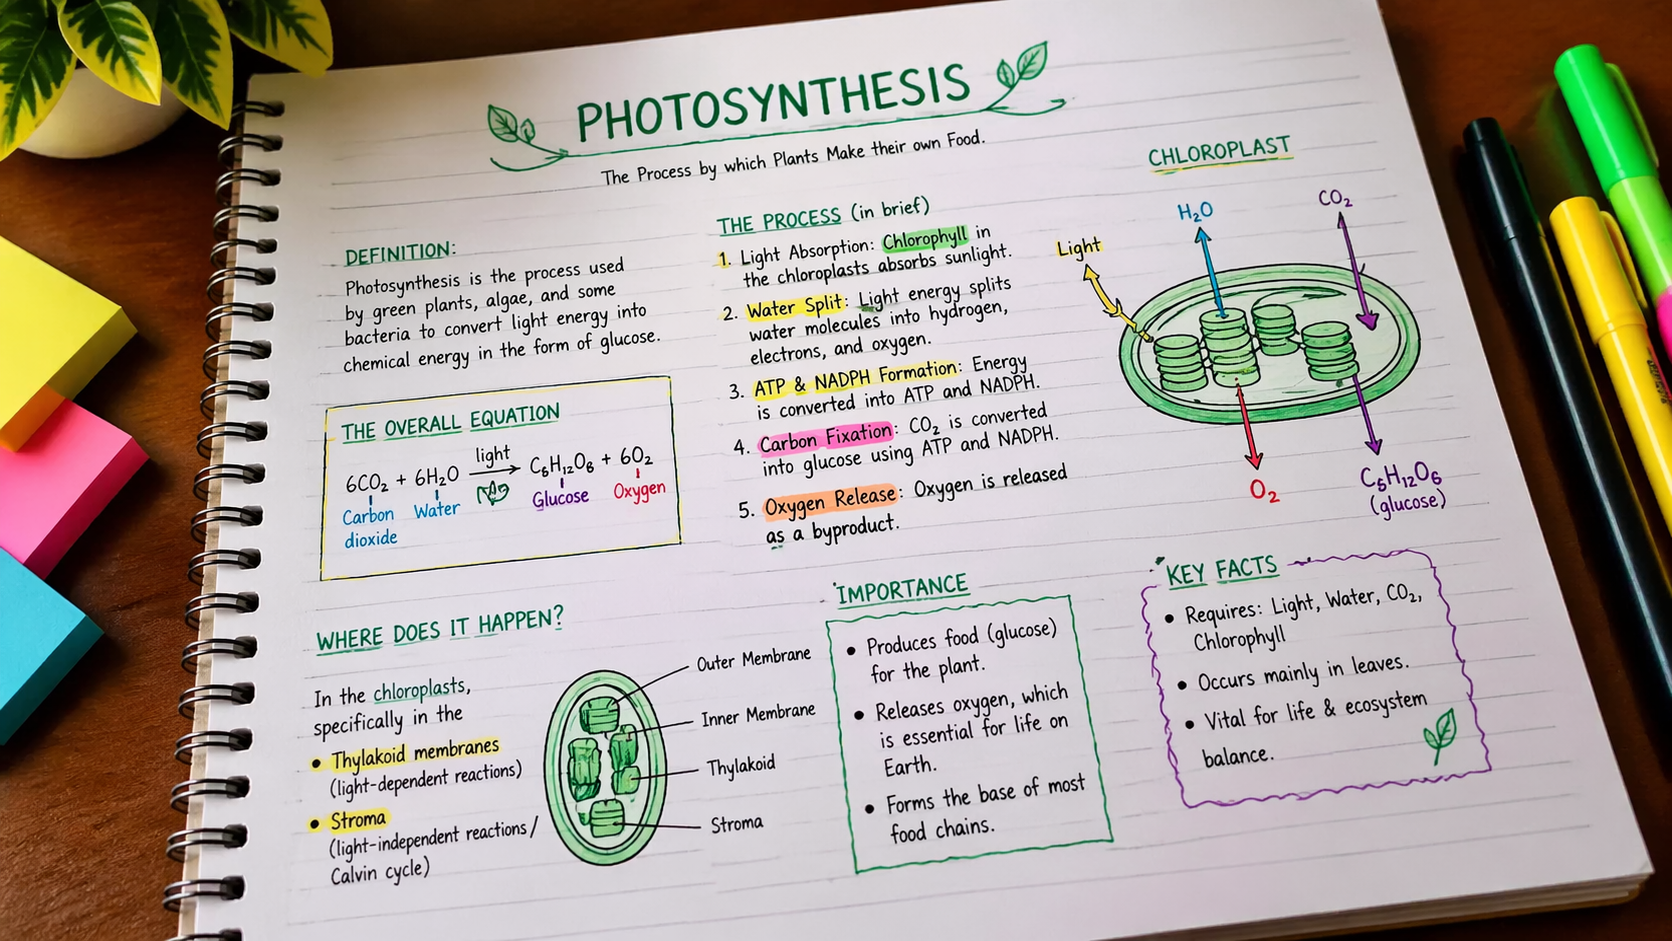 PHOTOSYNTHESIS
The Process by which Plants Make their own Food.
DEFINITION:
Photosynthesis is the process used
by green plants, algae, and some
bacteria to convert light energy into
chemical energy in the form of glucose.
THE OVERALL EQUATION
light
6CO₂ + 6H₂O → C₆H₁₂O₆ + 6O₂
Carbon
dioxide
Water
Glucose
Oxygen
THE PROCESS (in brief)
1. Light Absorption: Chlorophyll in
the chloroplasts absorbs sunlight.
2. Water Split: Light energy splits
water molecules into hydrogen,
electrons, and oxygen.
3. ATP & NADPH Formation: Energy
is converted into ATP and NADPH.
4. Carbon Fixation: CO₂ is converted
into glucose using ATP and NADPH.
5. Oxygen Release: Oxygen is released
as a byproduct.
CHLOROPLAST
Light
H₂O
CO₂
O₂
C₆H₁₂O₆
(glucose)
WHERE DOES IT HAPPEN?
In the chloroplasts,
specifically in the
• Thylakoid membranes
(light-dependent reactions)
• Stroma
(light-independent reactions/
Calvin cycle)
Outer Membrane
Inner Membrane
Thylakoid
Stroma
IMPORTANCE
• Produces food (glucose)
for the plant.
• Releases oxygen, which
is essential for life on
Earth.
• Forms the base of most
food chains.
KEY FACTS
• Requires: Light, Water, CO₂,
Chlorophyll
• Occurs mainly in leaves.
• Vital for life & ecosystem
balance.